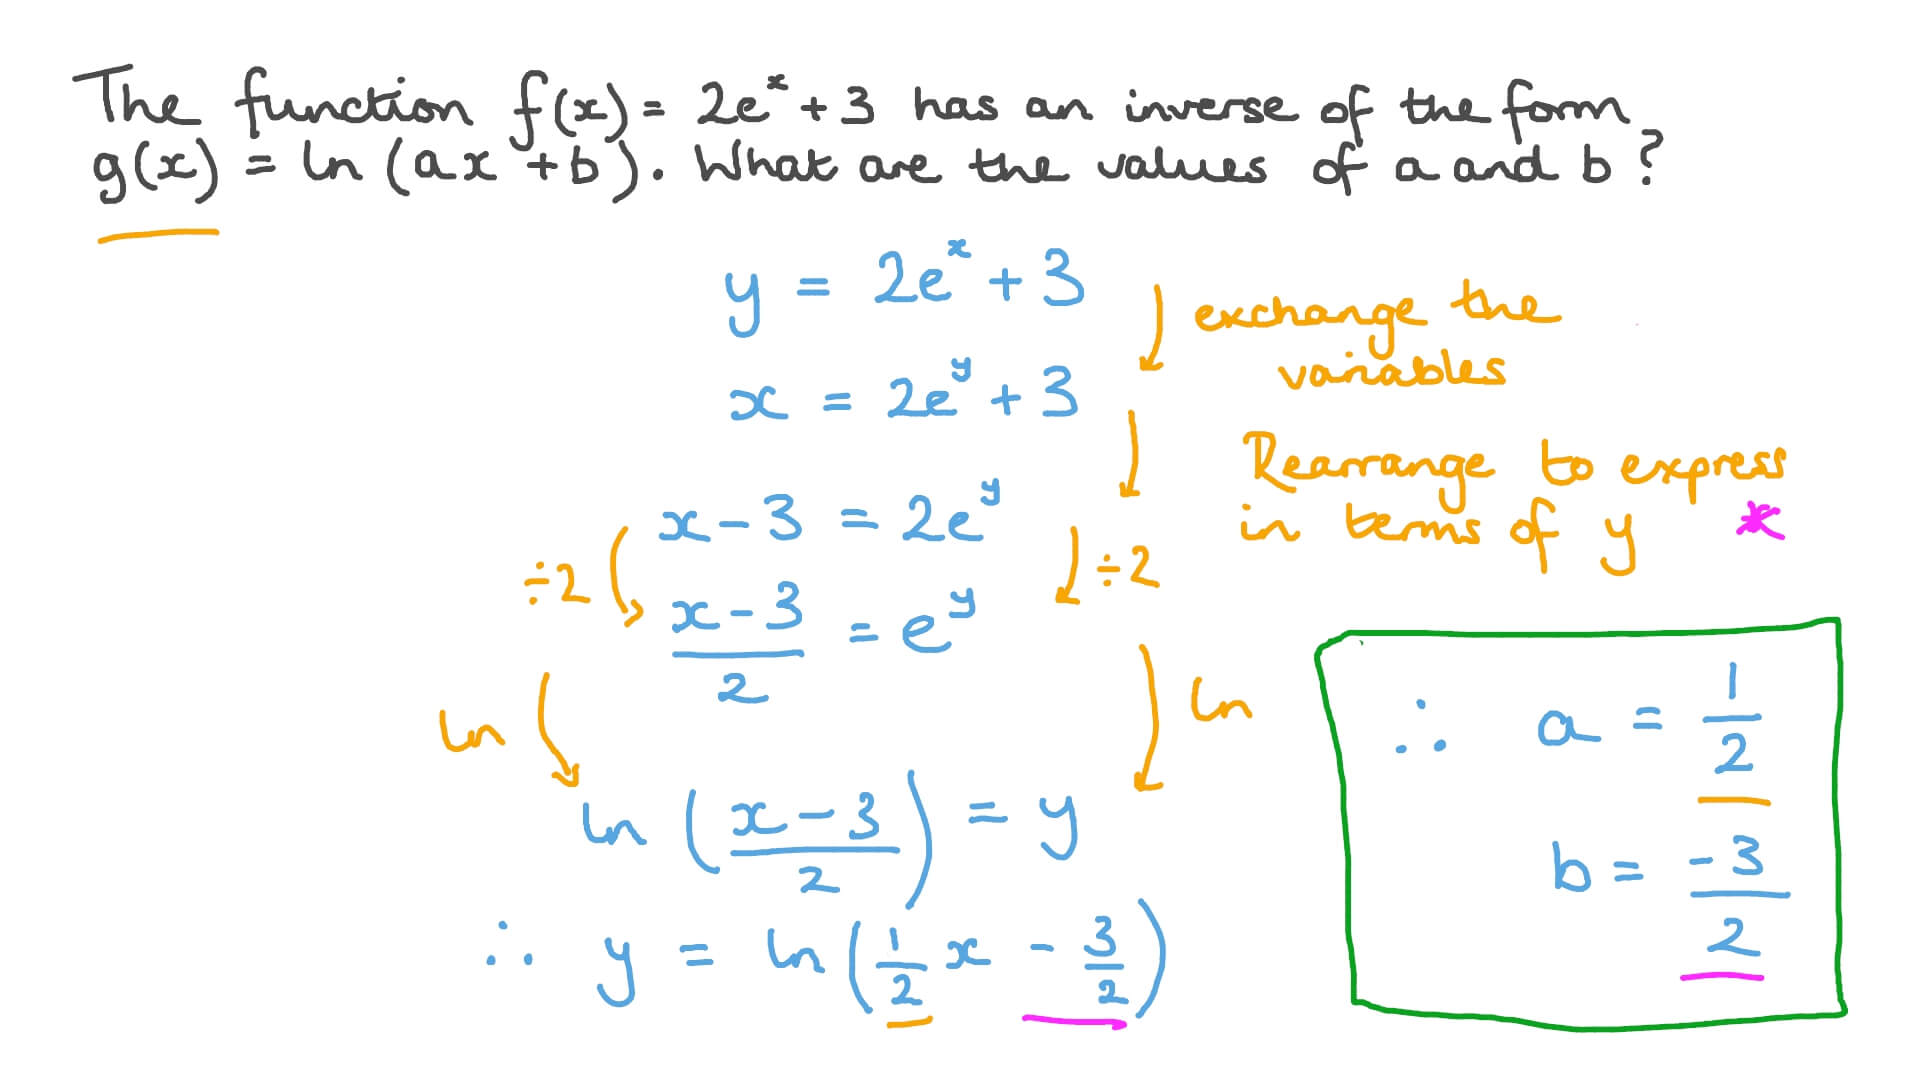 The function f(x) = 2eˣ + 3 has an inverse of the form
g(x) = ln (ax + b). What are the values of a and b?
y = 2eˣ + 3
exchange the
variables
x = 2eʸ + 3
Rearrange to express
in terms of y *
x - 3 = 2eʸ
÷2 ÷2
(x - 3)/2 = eʸ
ln ln
ln ((x - 3)/2) = y
∴ y = ln (1/2 x - 3/2)
∴ a = 1/2
b = -3/2